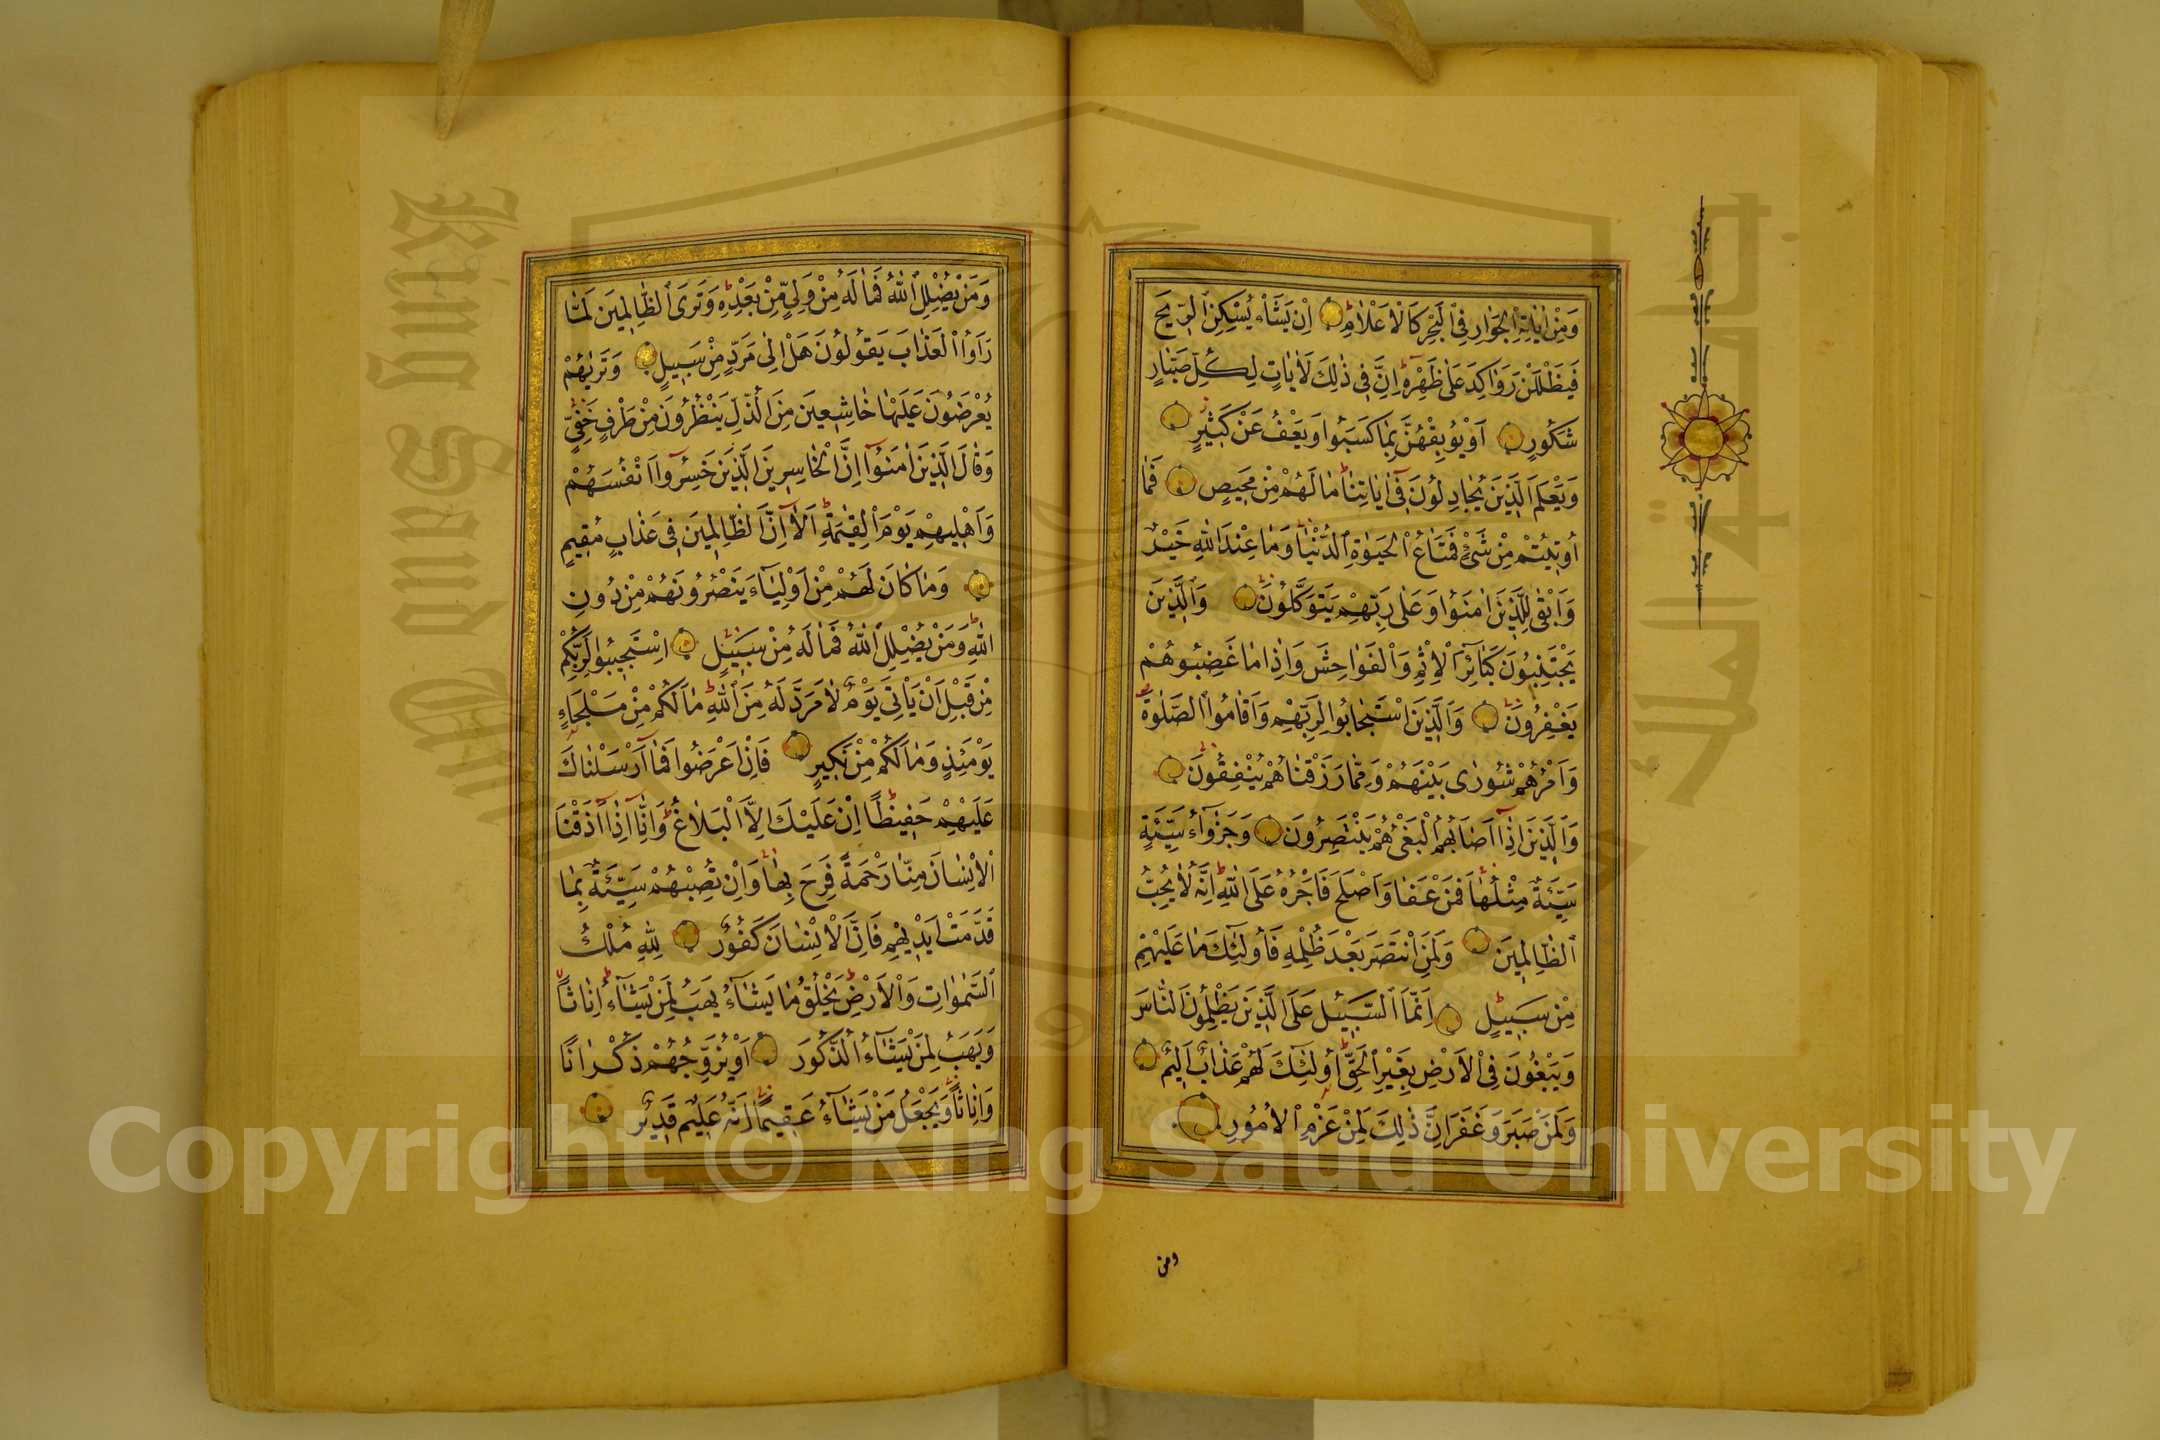 وَمِنْ اٰيَاتِهِ الْجَوَارِ فِي الْبَحْرِ كَالْاَعْلَامِ اِنْ يَشَأْ يُسْكِنِ الرِّيحَ
فَيَظْلَلْنَ رَوَاكِدَ عَلٰى ظَهْرِهِ اِنَّ فِي ذٰلِكَ لَاٰيَاتٍ لِكُلِّ صَبَّارٍ
شَكُورٍ اَوْ يُوبِقْهُنَّ بِمَا كَسَبُوا وَيَعْفُ عَنْ كَثِيرٍ
وَيَعْلَمَ الَّذِينَ يُجَادِلُونَ فِي اٰيَاتِنَا مَا لَهُمْ مِنْ مَحِيصٍ فَمَا
اُوتِيتُمْ مِنْ شَيْءٍ فَمَتَاعُ الْحَيٰوةِ الدُّنْيَا وَمَا عِنْدَ اللّٰهِ خَيْرٌ
وَاَبْقٰى لِلَّذِينَ اٰمَنُوا وَعَلٰى رَبِّهِمْ يَتَوَكَّلُونَ وَالَّذِينَ
يَجْتَنِبُونَ كَبَائِرَ الْاِثْمِ وَالْفَوَاحِشَ وَاِذَا مَا غَضِبُوا هُمْ
يَغْفِرُونَ وَالَّذِينَ اسْتَجَابُوا لِرَبِّهِمْ وَاَقَامُوا الصَّلٰوةَ
وَاَمْرُهُمْ شُورٰى بَيْنَهُمْ وَمِمَّا رَزَقْنَاهُمْ يُنْفِقُونَ
وَالَّذِينَ اِذَا اَصَابَهُمُ الْبَغْيُ هُمْ يَنْتَصِرُونَ وَجَزٰٓؤُا سَيِّئَةٍ
سَيِّئَةٌ مِثْلُهَا فَمَنْ عَفَا وَاَصْلَحَ فَاَجْرُهُ عَلَى اللّٰهِ اِنَّهُ لَا يُحِبُّ
الظَّالِمِينَ وَلَمَنِ انْتَصَرَ بَعْدَ ظُلْمِهِ فَاُولٰئِكَ مَا عَلَيْهِمْ
مِنْ سَبِيلٍ اِنَّمَا السَّبِيلُ عَلَى الَّذِينَ يَظْلِمُونَ النَّاسَ
وَيَبْغُونَ فِي الْاَرْضِ بِغَيْرِ الْحَقِّ اُولٰئِكَ لَهُمْ عَذَابٌ اَلِيمٌ
وَلَمَنْ صَبَرَ وَغَفَرَ اِنَّ ذٰلِكَ لَمِنْ عَزْمِ الْاُمُورِ
ومن
وَمَنْ يُضْلِلِ اللّٰهُ فَمَا لَهُ مِنْ وَلِيٍّ مِنْ بَعْدِهِ وَتَرَى الظَّالِمِينَ لَمَّا
رَاَوُا الْعَذَابَ يَقُولُونَ هَلْ اِلٰى مَرَدٍّ مِنْ سَبِيلٍ وَتَرٰيهُمْ
يُعْرَضُونَ عَلَيْهَا خَاشِعِينَ مِنَ الذُّلِّ يَنْظُرُونَ مِنْ طَرْفٍ خَفِيٍّ
وَقَالَ الَّذِينَ اٰمَنُوا اِنَّ الْخَاسِرِينَ الَّذِينَ خَسِرُوا اَنْفُسَهُمْ
وَاَهْلِيهِمْ يَوْمَ الْقِيٰمَةِ اَلَا اِنَّ الظَّالِمِينَ فِي عَذَابٍ مُقِيمٍ
وَمَا كَانَ لَهُمْ مِنْ اَوْلِيَاءَ يَنْصُرُونَهُمْ مِنْ دُونِ
اللّٰهِ وَمَنْ يُضْلِلِ اللّٰهُ فَمَا لَهُ مِنْ سَبِيلٍ اِسْتَجِيبُوا لِرَبِّكُمْ
مِنْ قَبْلِ اَنْ يَأْتِيَ يَوْمٌ لَا مَرَدَّ لَهُ مِنَ اللّٰهِ مَا لَكُمْ مِنْ مَلْجَاٍ
يَوْمَئِذٍ وَمَا لَكُمْ مِنْ نَكِيرٍ فَاِنْ اَعْرَضُوا فَمَا اَرْسَلْنَاكَ
عَلَيْهِمْ حَفِيظًا اِنْ عَلَيْكَ اِلَّا الْبَلَاغُ وَاِنَّا اِذَا اَذَقْنَا
الْاِنْسَانَ مِنَّا رَحْمَةً فَرِحَ بِهَا وَاِنْ تُصِبْهُمْ سَيِّئَةٌ بِمَا
قَدَّمَتْ اَيْدِيهِمْ فَاِنَّ الْاِنْسَانَ كَفُورٌ لِلّٰهِ مُلْكُ
السَّمٰوَاتِ وَالْاَرْضِ يَخْلُقُ مَا يَشَاءُ يَهَبُ لِمَنْ يَشَاءُ اِنَاثًا
وَيَهَبُ لِمَنْ يَشَاءُ الذُّكُورَ اَوْ يُزَوِّجُهُمْ ذُكْرَانًا
وَاِنَاثًا وَيَجْعَلُ مَنْ يَشَاءُ عَقِيمًا اِنَّهُ عَلِيمٌ قَدِيرٌ
King Saud University
جامعة الملك
Copyright © King Saud University